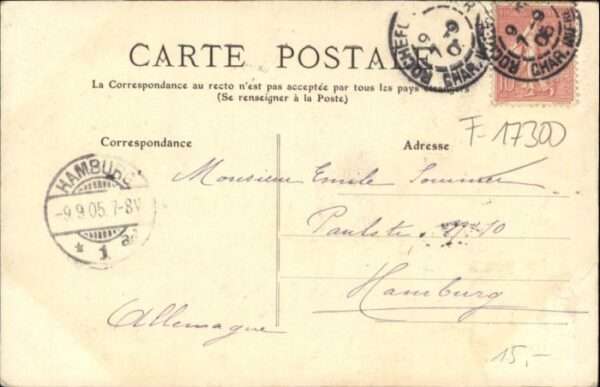 CARTE POSTALE
La Correspondance au recto n'est pas acceptée par tous les pays étrangers
(Se renseigner à la Poste)
Correspondance
Adresse
F-17300
ROCHEF
CHAR.
HAMBURG
-9.9.05. 7-8V.
* 1
Monsieur Emile Sommer
Paulstr. 10
Hamburg
Allemagne
15,-
10